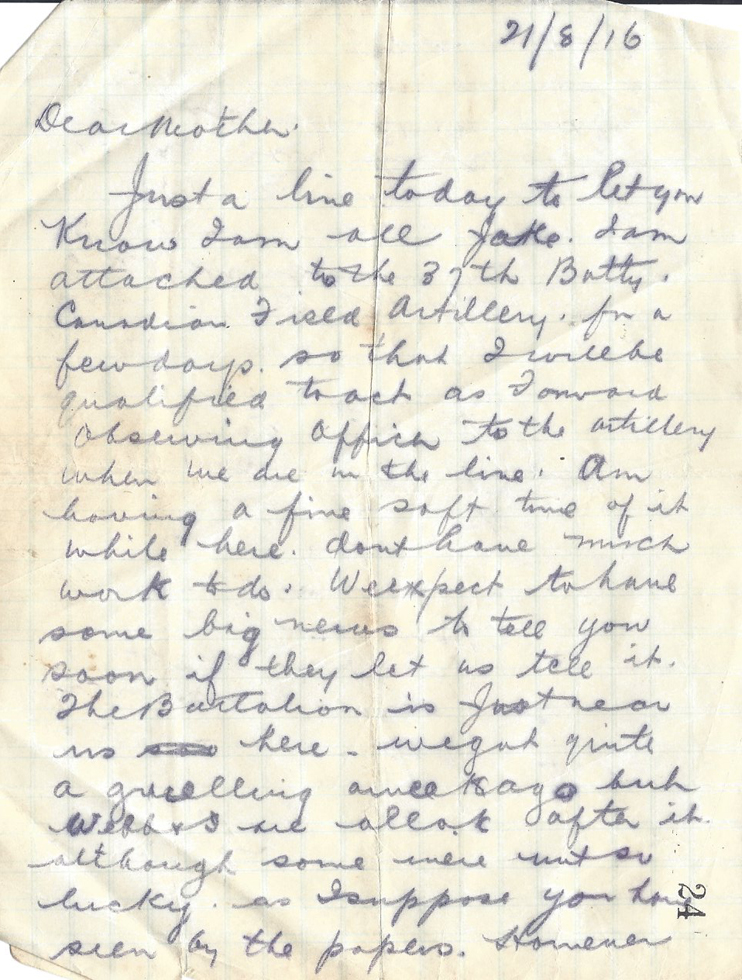 21/8/16
Dear Mother.
Just a line today to let you
Know I am all Jake. I am
attached to the 37th Batty.
Canadian Field Artillery. for a
few days. so that I will be
qualified to act as Forward
Observing Officer to the artillery
when we are in the line. Am
having a fine soft time of it
while here. dont have much
work to do. We expect to have
some big news to tell you
soon if they let us tell it.
The Battalion is Just near
us here - we got quite
a gruelling a week ago but
Webb & I are all o.k after it.
although some were not so
lucky. as I suppose you have
seen by the papers. However
24